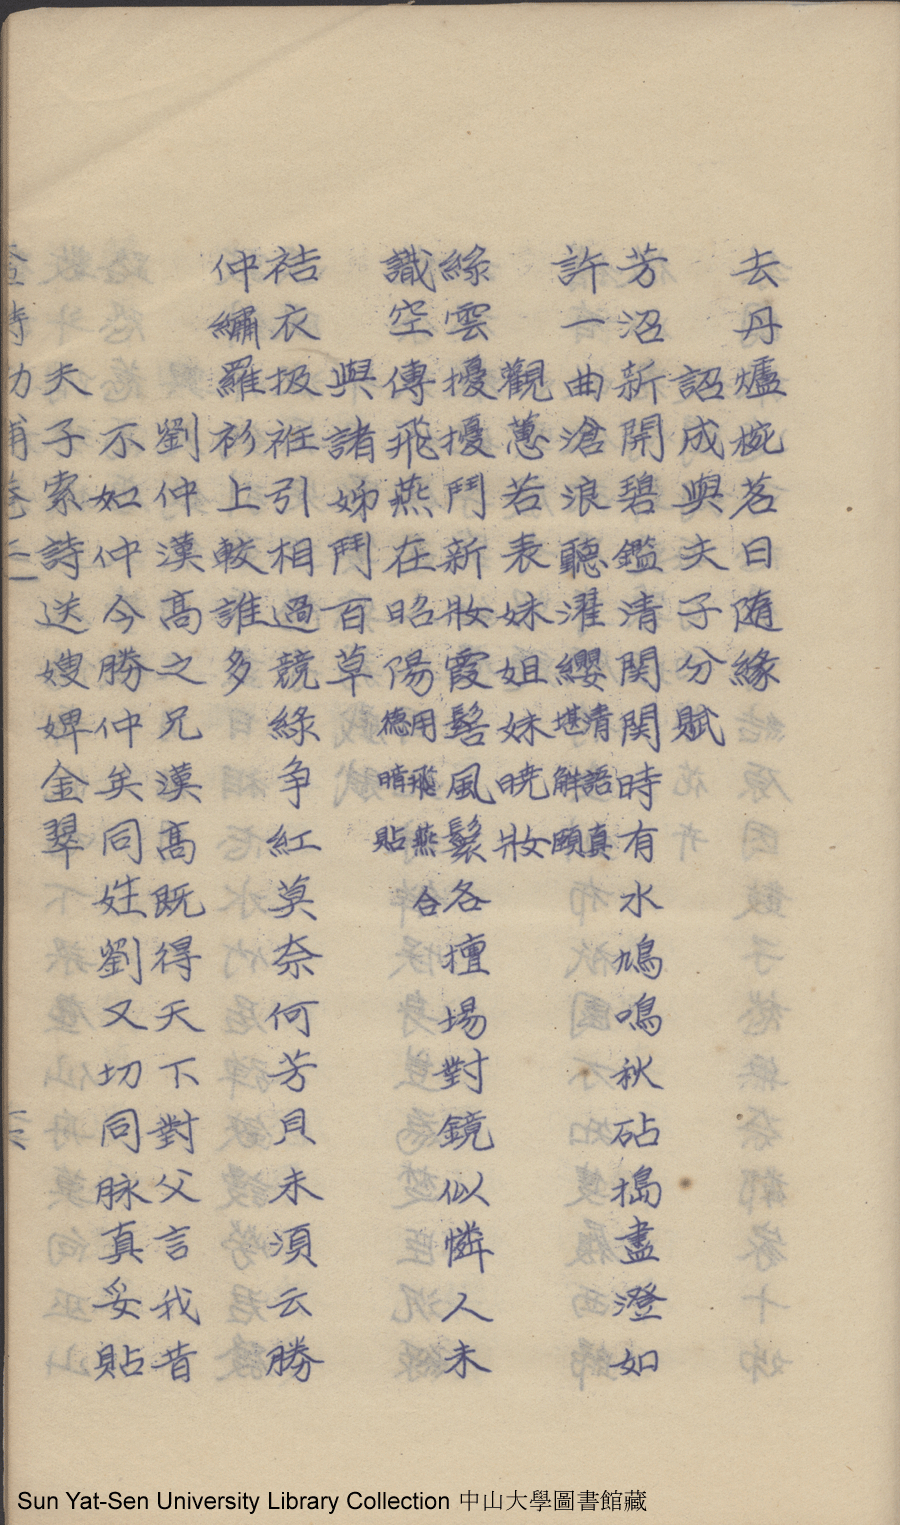 去丹爐椀茗日随緣
詔成與夫子分賦
芳沼新開碧鑑清関関時有水鳩鳴秋砧搗盡澄如
許一曲滄浪聽濯纓清語真堪解頤
觀蕙若表妹姐妹曉妝
綠雲擾擾鬥新妝霞髻風鬟各擅場對鏡似憐人未
識空傳飛燕在昭陽用飛燕合德晴貼
與諸姊鬥百草
祮衣扱袵引相過競綠争紅莫奈何芳貝未須云勝
仲繡羅衫上較誰多
劉仲漢高之兄漢高既得天下對父言我昔
不如仲今勝仲矣同姓劉又切同脉真妥貼
夫子索詩送嫂婢金翠